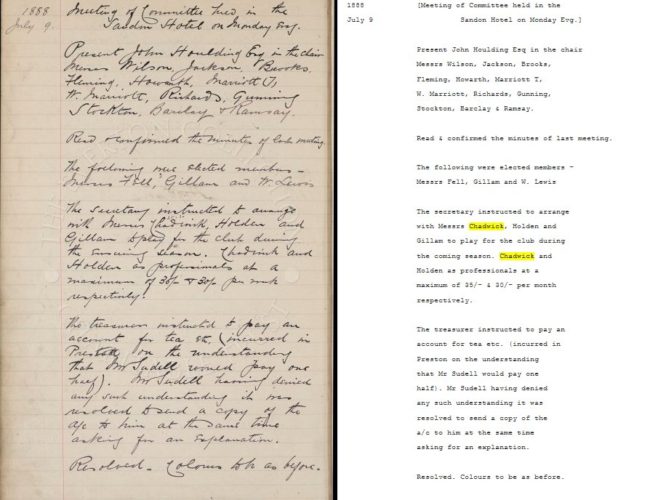 1888 Meeting of Committee held in the
July 9. Sandon Hotel on Monday Evg.
Present John Houlding Esq in the chair
Messrs Wilson, Jackson, Brooks,
Fleming, Howarth, Marriott T,
W. Marriott, Richards, Gunning
Stockton, Barclay & Ramsay.
Read & confirmed the minutes of last meeting.
The following were elected members -
Messrs Fell, Gillam and W. Lewis
The Secretary instructed to arrange
with Messrs Chadwick, Holden and
Gillam to play for the club during
the ensuing season. Chadwick and
Holden as professionals at a
maximum of & 30/- per week
respectively.
The treasurer instructed to pay an
account for tea etc. (incurred in
Preston on the understanding
that Mr Sudell would pay one
half). Mr Sudell having denied
any such understanding it was
resolved to send a copy of the
a/c to him at the same time
asking for an explanation.
Resolved. Colours to be as before.
1888 [Meeting of Committee held in the
July 9 Sandon Hotel on Monday Evg.]
Present John Houlding Esq in the chair
Messrs Wilson, Jackson, Brooks,
Fleming, Howarth, Marriott T,
W. Marriott, Richards, Gunning,
Stockton, Barclay & Ramsay.
Read & confirmed the minutes of last meeting.
The following were elected members -
Messrs Fell, Gillam and W. Lewis
The secretary instructed to arrange
with Messrs Chadwick, Holden and
Gillam to play for the club during
the coming season. Chadwick and
Holden as professionals at a
maximum of 35/- & 30/- per month
respectively.
The treasurer instructed to pay an
account for tea etc. (incurred in
Preston on the understanding
that Mr Sudell would pay one
half). Mr Sudell having denied
any such understanding it was
resolved to send a copy of the
a/c to him at the same time
asking for an explanation.
Resolved. Colours to be as before.